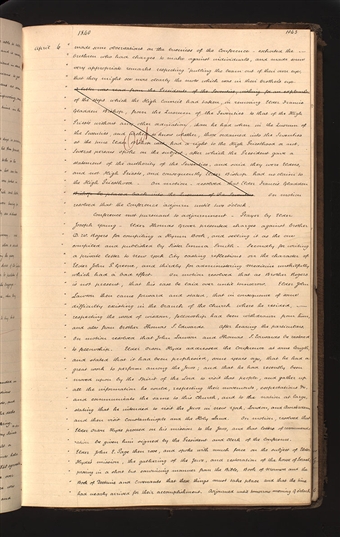 1840
1043
April 6
made some observations on the business of the Conference - exhorted the
brethren who had charges to make against individuals, and made some
very appropriate remarks respecting "pulling the beam out of their own eye,
that they might see more clearly the mote which was in their brother's eye.
A letter was read from the Presidents of the Seventies, wishing for an explanation
of the steps which the High Council had taken, in removing Elder Francis
Gladden Bishop, from the Quorum of the Seventies to that of the High
Priests without any other ordination than he had when in the Quorum of
the Seventies and to know whether those ordained into the Seventies
at the same time had a right to the High Priesthood or not.
Several persons spoke on the subject, after which the President gave a
statement of the authority of the Seventies, and said they were Elders,
and not High Priests, and consequently Elder Bishop had no claim to
the High Priesthood. On motion resolved that Elder Francis Gladden
Bishop be placed back into the Quorum of the Seventies. On motion
resolved that the Conference adjourn until two o'clock.
Conference met pursuant to adjournment - Prayer by Elder
Joseph Young. Elder Thomas Grover presented charges against brother
D. W. Rogers for compiling an Hymn Book, and selling it as the one
compiled and published by Sister Emma Smith. Secondly for writing
a private letter to New York City casting reflections on the character of
Elder John P Greene, and thirdly for administering medicine unskilfully
which had a bad effect. On motion resolved that as Brother Rogers
is not present, that his case be laid over until tomorrow. Elder John
Lawson then came forward and stated, that in consequence of some
difficulty existing in the branch of the Church where he resided,
respecting the word of wisdom, fellowship had been withdrawn from him,
and also from brother Thomas S. Edwards. After hearing the particulars
on motion resolved that John Lawson and Thomas S. Edwards be restored
to fellowship. Elder Orson Hyde addressed the Conference at some length
and stated that it had been prophesied, some years ago, that he had a
great work to perform among the Jews; and that he had recently been
moved upon by the Spirit of the Lord to visit that people, and gather up
all the information he could respecting their movements, expectations &c.
and communicate the same to this Church, and to the nation at large,
stating that he intended to visit the Jews in New York, London, and Amsterdam,
and then visit Constantinople and the Holy Land. On motion, resolved that
Elder Orson Hyde proceed on his mission to the Jews, and that letters of recommenda-
tion be given him signed by the President and Clerk of the Conference.
Elder John E. Page then rose, and spoke with much force on the subject of Elder
Hyde's mission, the gathering of the Jews, and restoration of the house of Israel,
proving in a short but convincing manner from the Bible, Book of Mormon and the
Book of Doctrine and Covenants that these things must take place and that the time
had nearly arrived for their accomplishment. Adjourned until tomorrow morning 9 o'clock